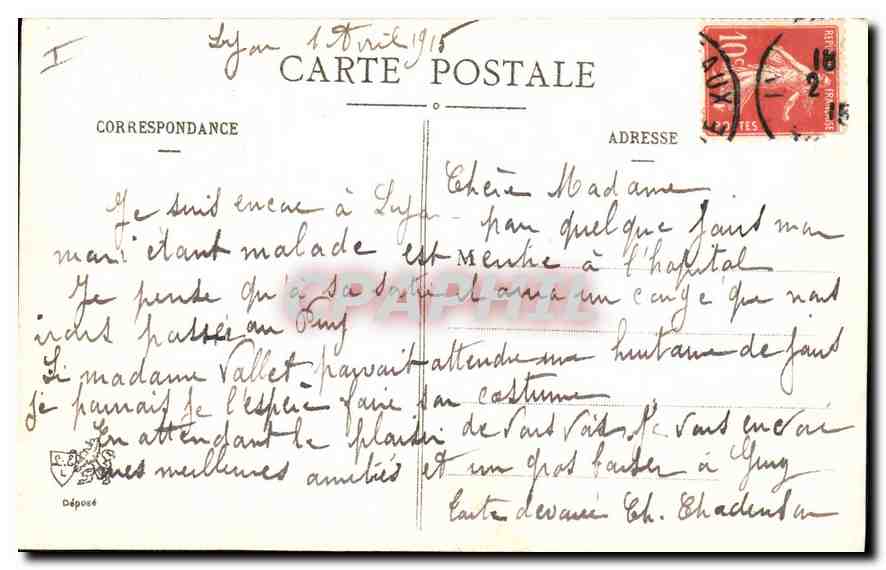 I
Lyon 1 Avril 1915
CARTE POSTALE
CORRESPONDANCE
ADRESSE
REPUBLIQUE FRANÇAISE
10c
POSTES
16
2
15
Chère Madame
Je suis encore à Lyon pour quelque jours mon
mari étant malade est rentré à l'hopital
Je pense qu'à sa sortie il aura un congé que nous
irons passer au Puy
Si madame Vallet pouvait attendre une huitaine de jours
je pourrais je l'espère faire son costume
En attendant le plaisir de vous voir Je vous envoie
mes meilleures amitiés et un gros baiser à Guy
Toute dévouée Ch. Chadenson
CPAPHIL
M
Déposé